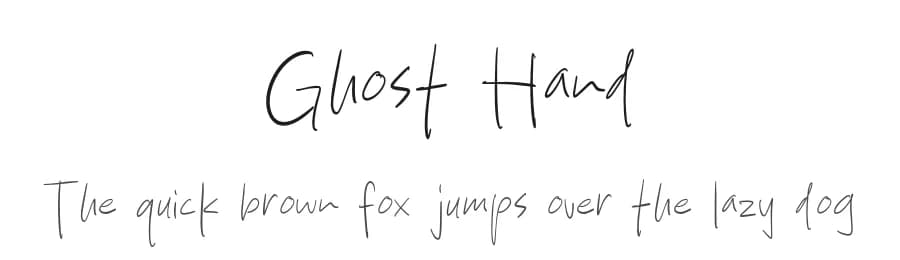 Ghost Hand
The quick brown fox jumps over the lazy dog